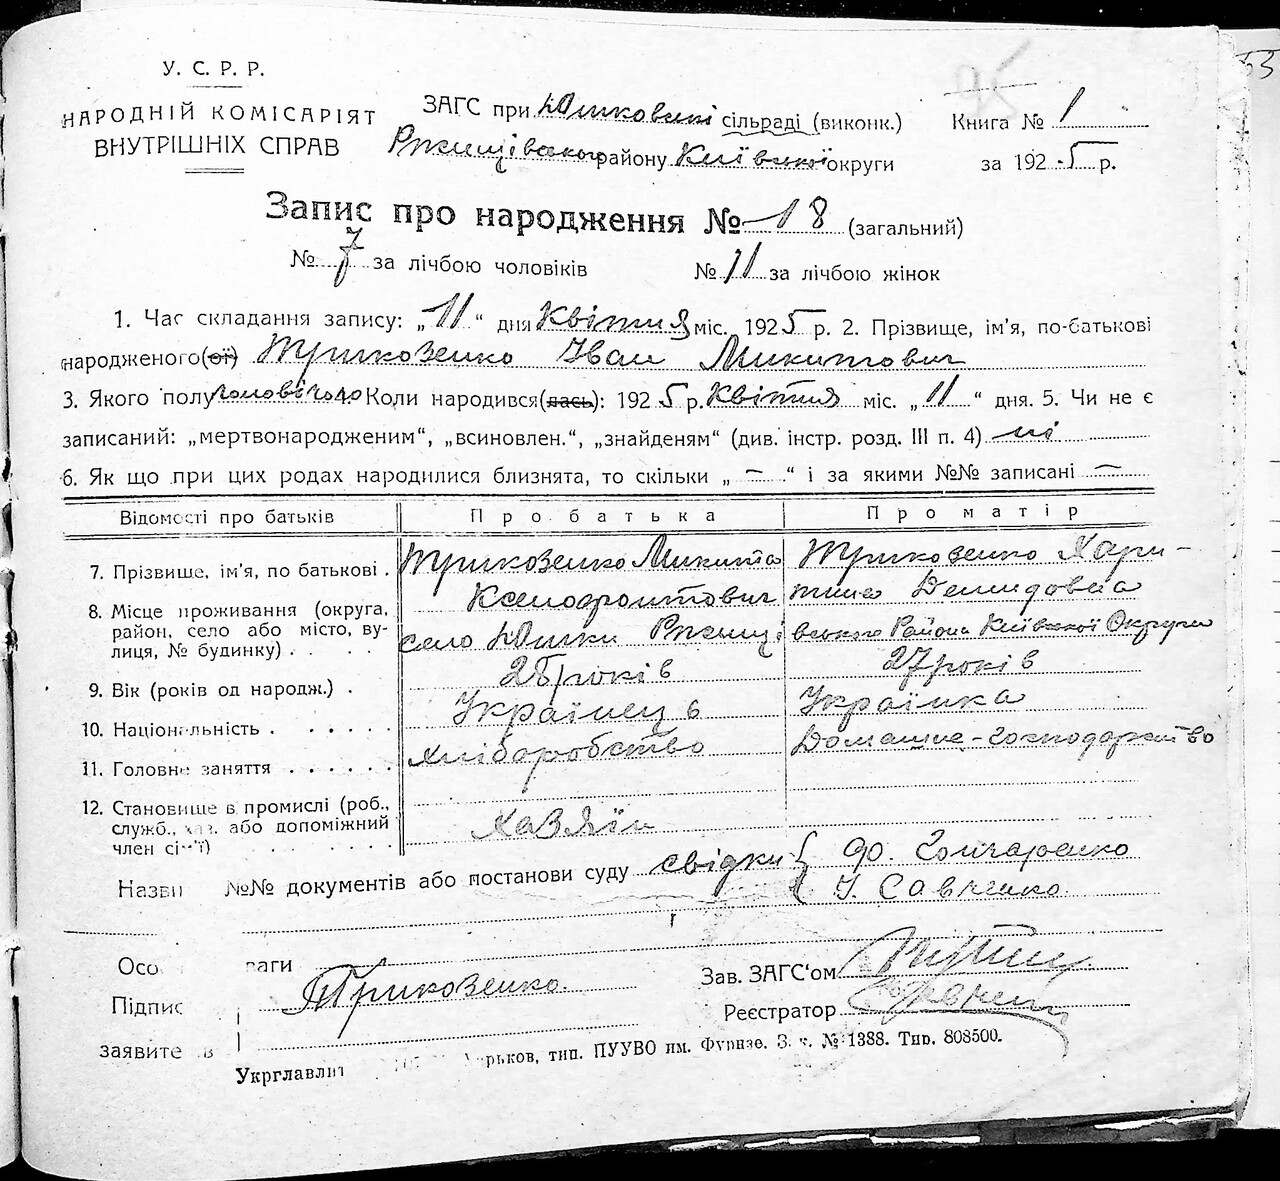 53
У. С. Р. Р.
НАРОДНІЙ КОМІСАРІЯТ
ВНУТРІШНІХ СПРАВ
ЗАГС при Юшковині сільраді (виконк.)
Ржищівського району Київської округи
Книга № 1
за 1925 р.
Запис про народження № 18 (загальний)
№ 7 за лічбою чоловіків № 11 за лічбою жінок
1. Час складання запису: „11" дня Квітня міс. 1925 р. 2. Прізвище, ім'я, по-батькові
народженого(ої) Трикозенко Іван Микитович
3. Якого полу чоловічого 4. Коли народився(лась): 1925 р. Квітня міс. „11" дня. 5. Чи не є
записаний: „мертвонародженим", „всиновлен.", „знайденям" (див. інстр. розд. III п. 4) ні
6. Як що при цих родах народилися близнята, то скільки „—" і за якими №№ записані —
Відомості про батьків Про батька Про матір
7. Прізвище, ім'я, по батькові . Трикозенко Микита Ксенофонтович Трикозенко Харитина Демидовна
8. Місце проживання (округа, район, село або місто, вулиця, № будинку) . . . . село Юшки Ржищівського Района Київської Округи
9. Вік (років од народж.) . 28 років 27 років
10. Національність . . . . . . Українець Українка
11. Головне заняття . . . . . . Хліборобство Домашнє-господарство
12. Становище в промислі (роб.,
служб., хаз. або допоміжний
член сім'ї) . . . . . . . Хазяїн
Назви №№ документів або постанови суду свідки { Ф. Гончаренко
І. Савченко
Осо ваги
Підпис Трикозенко
заявите в
Зав. ЗАГС'ом
Реєстратор
Укрглавліт Харьков, тип. ПУУВО им. Фрунзе. З. ч. № 1388. Тир. 808500.